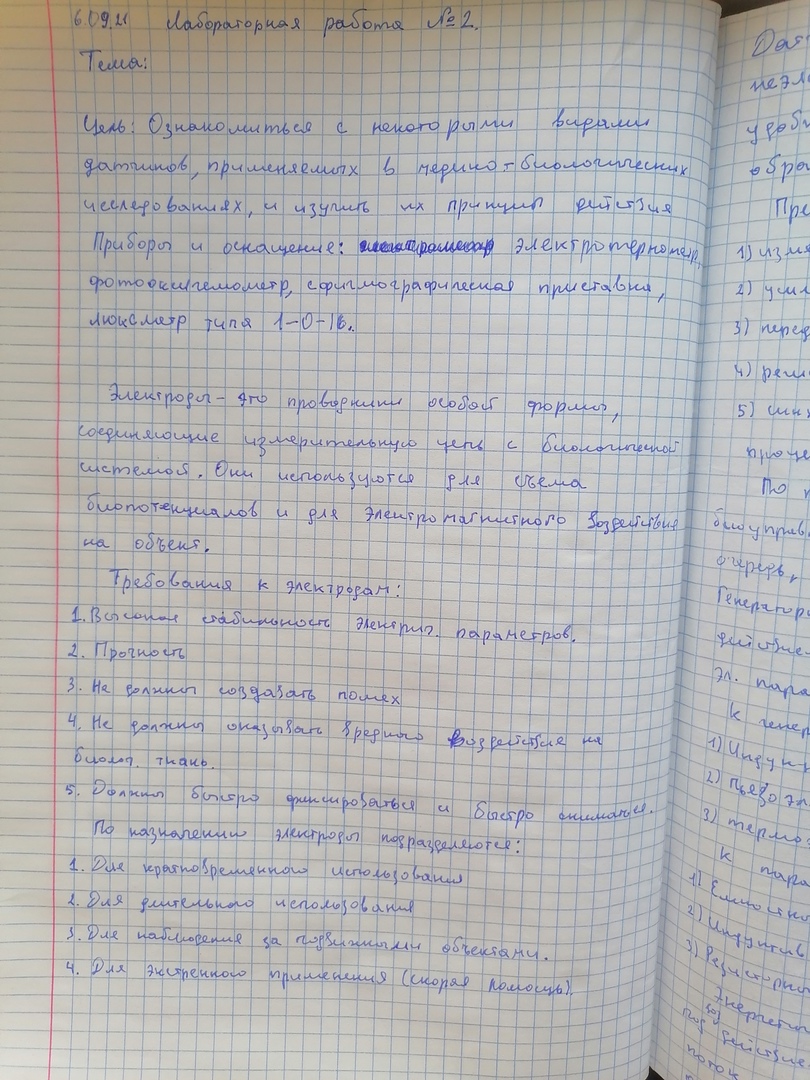 6.09.21 Лабораторная работа №2.
Тема:
Цель: Ознакомиться с некоторыми видами
датчиков, применяемых в медико-биологических
исследованиях, и изучить их принцип действия
Приборы и оснащение: электротермометр,
фотооксигемометр, сфигмографическая приставка,
люксметр типа 1-0-16.
Электроды - это проводники особой формы,
соединяющие измерительную цепь с биологической
системой. Они используются для съема
биопотенциалов и для электромагнитного воздействия
на объект.
Требования к электродам:
1. Высокая стабильность электрич. параметров.
2. Прочность
3. Не должны создавать помех
4. Не должны оказывать вредного воздействие на
биол. ткань.
5. Должны быстро фиксироваться и быстро сниматься.
По назначению электроды подразделяются:
1. Для кратковременного использования
2. Для длительного использования
3. Для наблюдения за подвижными объектами.
4. Для экстренного применения (скорая помощь).
Дат
неэл
удоб
обра
Пре
1) изме
2) усил
3) перед
4)
5) синх
проце
По
биоуправ
очередь,
Генератор
действие
эл. пара
К генер
1) Индук
2) Пьезоэл
3) термоэ
К пара
1) Емкостн
2) Индуктив
3) Резисторн
Энергетич
под действие
поток